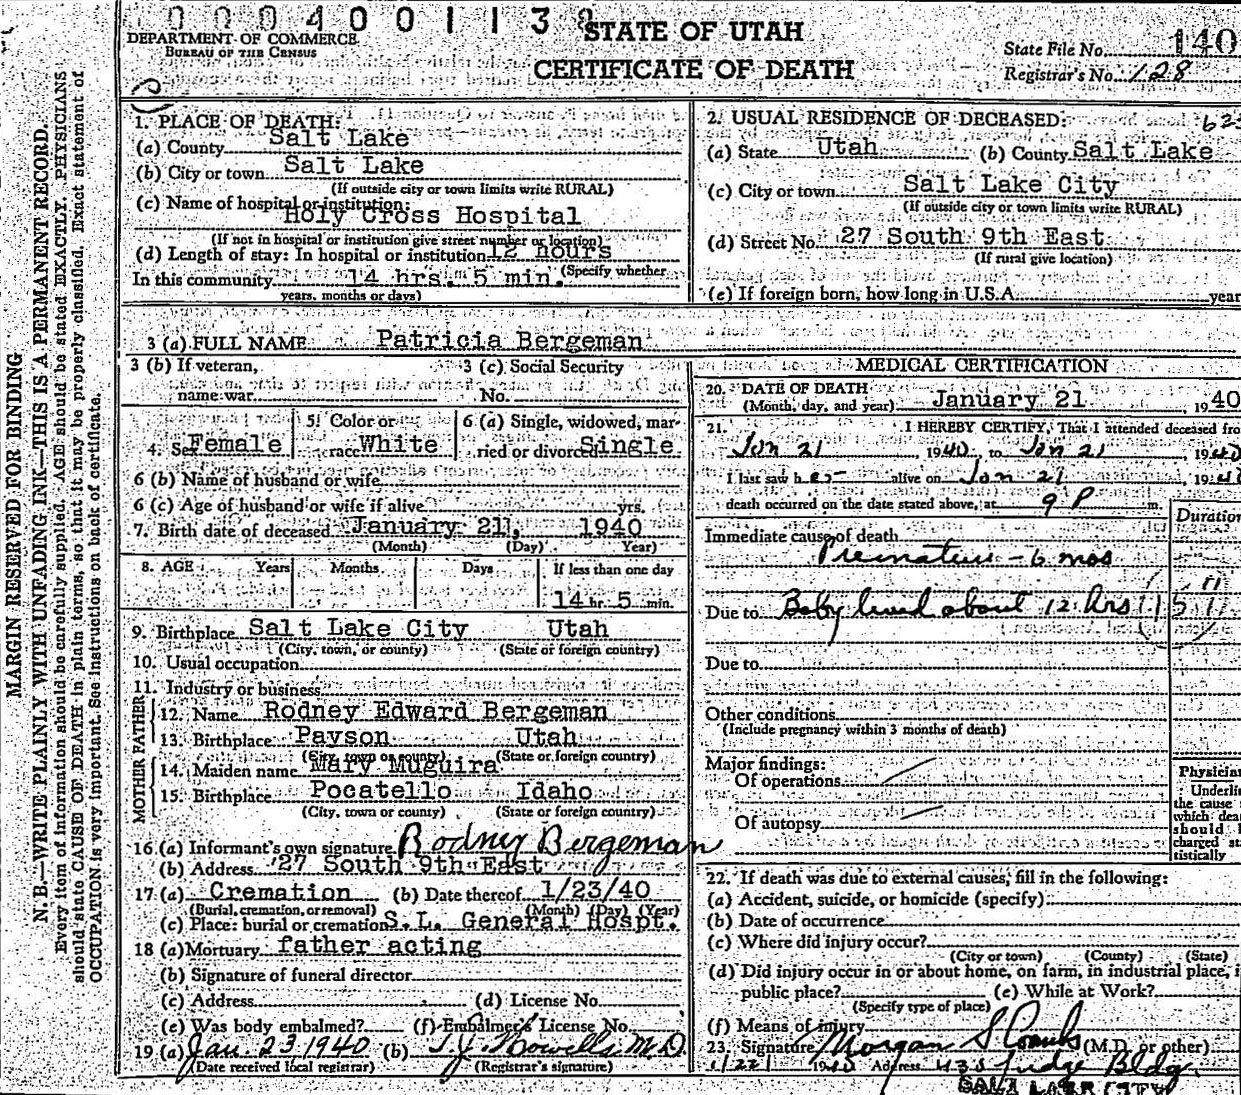 0004001139
STATE OF UTAH
CERTIFICATE OF DEATH
DEPARTMENT OF COMMERCE
BUREAU OF THE CENSUS
State File No. 140
Registrar's No. 128
MARGIN RESERVED FOR BINDING
N. B.—WRITE PLAINLY WITH UNFADING INK—THIS IS A PERMANENT RECORD.
Every item of information should be carefully supplied. AGE should be stated EXACTLY. PHYSICIANS
should state CAUSE OF DEATH in plain terms, so that it may be properly classified. Exact statement of
OCCUPATION is very important. See instructions on back of certificate.
1. PLACE OF DEATH:
(a) County Salt Lake
(b) City or town Salt Lake
(If outside city or town limits write RURAL)
(c) Name of hospital or institution:
Holy Cross Hospital
(If not in hospital or institution give street number or location)
(d) Length of stay: In hospital or institution 12 hours
(Specify whether
In this community 14 hrs. 5 min.
years, months or days)
2. USUAL RESIDENCE OF DECEASED:
(a) State Utah (b) County Salt Lake
(c) City or town Salt Lake City
(If outside city or town limits write RURAL)
(d) Street No. 27 South 9th East
(If rural give location)
(e) If foreign born, how long in U.S.A. year
3 (a) FULL NAME Patricia Bergeman
3 (b) If veteran,
name war
3 (c) Social Security
No.
4. Sex Female
5. Color or
race White
6 (a) Single, widowed, mar-
ried or divorced Single
6 (b) Name of husband or wife
6 (c) Age of husband or wife if alive yrs.
7. Birth date of deceased January 21, 1940
(Month) (Day) Year)
8. AGE Years Months Days If less than one day
14 hr. 5 min.
9. Birthplace Salt Lake City Utah
(City, town, or county) (State or foreign country)
10. Usual occupation
11. Industry or business
FATHER
12. Name Rodney Edward Bergeman
13. Birthplace Payson Utah
(City, town or county) (State or foreign country)
MOTHER
14. Maiden name Mary Muguira
15. Birthplace Pocatello Idaho
(City, town or county) (State or foreign country)
16 (a) Informant's own signature Rodney Bergeman
(b) Address 27 South 9th East
17 (a) Cremation (b) Date thereof 1/23/40
(Burial, cremation, or removal) (Month) (Day) (Year)
(c) Place: burial or cremation S.L. General Hospt.
18 (a) Mortuary father acting
(b) Signature of funeral director
(c) Address (d) License No.
(e) Was body embalmed? (f) Embalmer's License No.
19 (a) Jan. 23 1940 (b) T.J. Howells M.D.
(Date received local registrar) (Registrar's signature)
MEDICAL CERTIFICATION
20. DATE OF DEATH
(Month, day, and year) January 21, 1940
21. I HEREBY CERTIFY, That I attended deceased fro
Jan 21 1940, to Jan 21, 1940
I last saw her alive on Jan 21, 1940
death occurred on the date stated above, at 9 P m.
Duration
Immediate cause of death
Premature - 6 mos
Due to Baby lived about 12 hrs
Due to
Other conditions
(Include pregnancy within 3 months of death)
Major findings:
Of operations
Of autopsy
Physician
Underlin
the cause
which dea
should b
charged sta
tistically
22. If death was due to external causes, fill in the following:
(a) Accident, suicide, or homicide (specify)
(b) Date of occurrence
(c) Where did injury occur?
(City or town) (County) (State)
(d) Did injury occur in or about home, on farm, in industrial place, i
public place? (e) While at Work?
(Specify type of place)
(f) Means of injury
23. Signature Morgan S Coombs (M.D. or other)
1/22/ 1940 Address 435 Judge Bldg.
SALT LAKE CITY